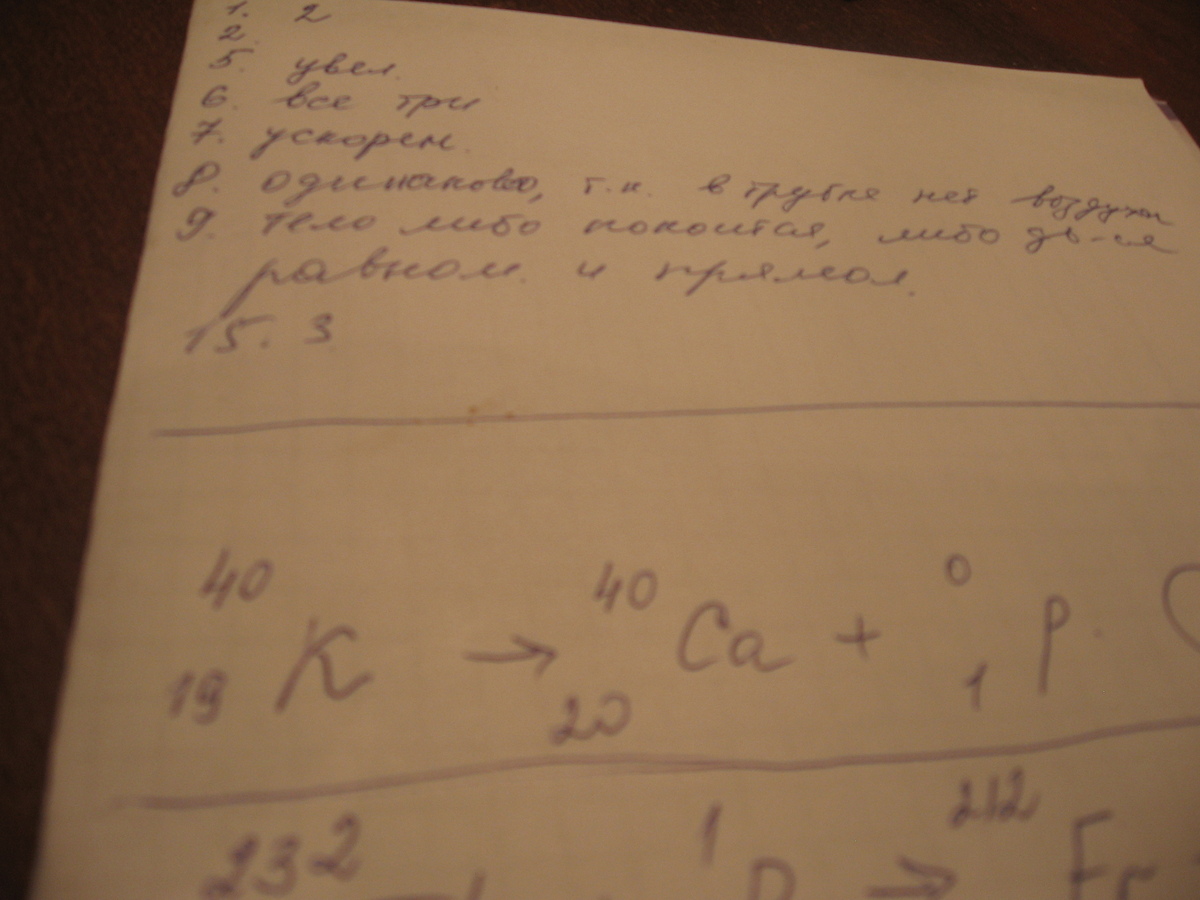 1. 2
2.
5. увел.
6. все три
7. ускорен.
8. одинаково, т.к. в трубке нет воздуха
9. тело либо покоится, либо дв-ся
равном. и прямол.
15. 3
40 19 K → 40 20 Ca + 0 1 p.
232 1 p → 212 Fr